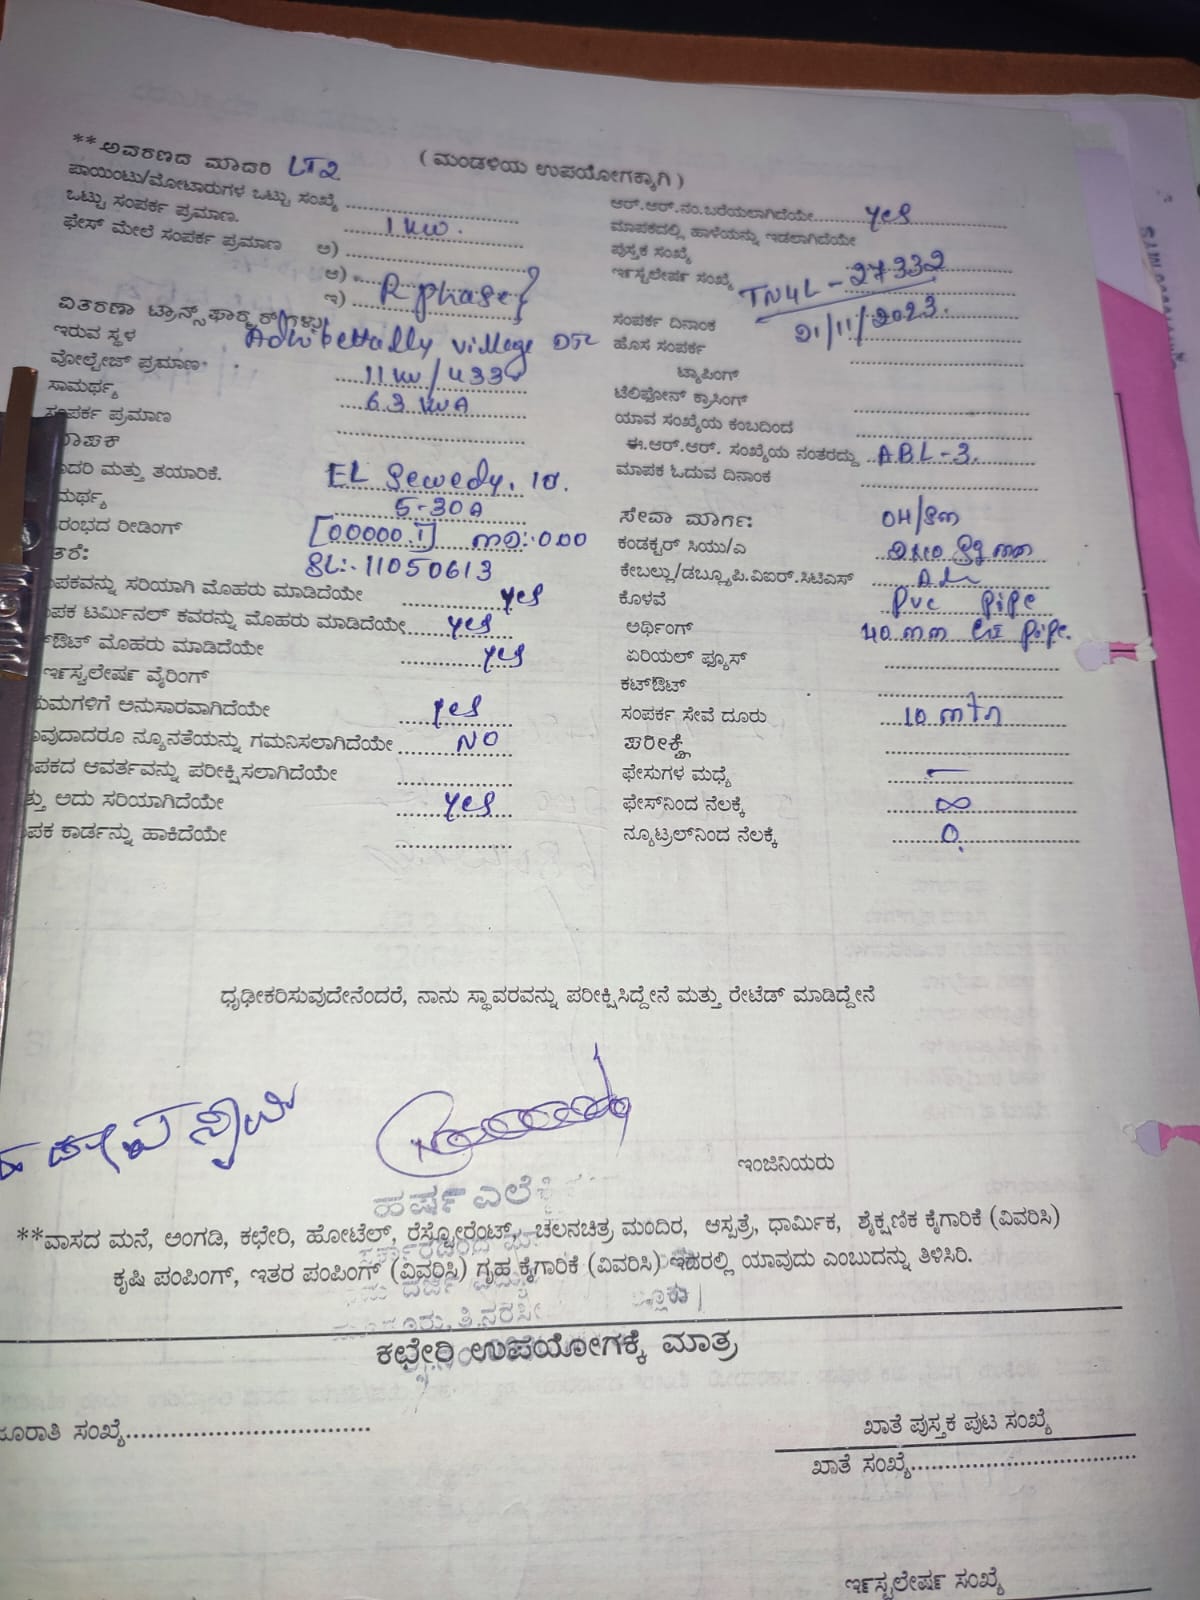 **ಅವರಣದ ಮಾದರಿ LT2
(ಮಂಡಳಿಯ ಉಪಯೋಗಕ್ಕಾಗಿ)
ಪಾಯಿಂಟು/ಮೋಟಾರುಗಳ ಒಟ್ಟು ಸಂಖ್ಯೆ
ಒಟ್ಟು ಸಂಪರ್ಕ ಪ್ರಮಾಣ. 1 KW.
ಫೇಸ್ ಮೇಲೆ ಸಂಪರ್ಕ ಪ್ರಮಾಣ ಅ)
ಆ)
ಇ) R phase
ವಿತರಣಾ ಟ್ರಾನ್ಸ್‌ಫಾರ್ಮರ್‌ಗಳು
ಇರುವ ಸ್ಥಳ village
ವೋಲ್ಟೇಜ್ ಪ್ರಮಾಣ 11 KV/433
ಸಾಮರ್ಥ್ಯ 63 KVA
ಸಂಪರ್ಕ ಪ್ರಮಾಣ
ಮಾಪಕ
ಮಾದರಿ ಮತ್ತು ತಯಾರಿಕೆ. EL Sewedy. 1Ø.
ಮರ್ಥ್ಯ 5-30A
ರಂಭದ ರೀಡಿಂಗ್ [00000.1]
ತರೆ: SL:- 11050613
ಪಕವನ್ನು ಸರಿಯಾಗಿ ಮೊಹರು ಮಾಡಿದೆಯೇ yes
ಪಕ ಟರ್ಮಿನಲ್ ಕವರನ್ನು ಮೊಹರು ಮಾಡಿದೆಯೇ yes
ಟ್‌ಔಟ್ ಮೊಹರು ಮಾಡಿದೆಯೇ yes
ರ್ಇಸ್ಟಲೇರ್ಷ ವೈರಿಂಗ್
ಯಮಗಳಿಗೆ ಅನುಸಾರವಾಗಿದೆಯೇ yes
ಾವುದಾದರೂ ನ್ಯೂನತೆಯನ್ನು ಗಮನಿಸಲಾಗಿದೆಯೇ NO
ಪಕದ ಆವರ್ತವನ್ನು ಪರೀಕ್ಷಿಸಲಾಗಿದೆಯೇ
ತ್ತು ಅದು ಸರಿಯಾಗಿದೆಯೇ yes
ಪಕ ಕಾರ್ಡನ್ನು ಹಾಕಿದೆಯೇ
ಆರ್.ಆರ್.ನಂ.ಬರೆಯಲಾಗಿದೆಯೇ yes
ಮಾಪಕದಲ್ಲಿ ಹಾಳೆಯನ್ನು ಇಡಲಾಗಿದೆಯೇ
ಪುಸ್ತಕ ಸಂಖ್ಯೆ
ರ್ಇಸ್ಟಲೇರ್ಷ ಸಂಖ್ಯೆ TN4L-27332
ಸಂಪರ್ಕ ದಿನಾಂಕ 21/11/2023.
ಹೊಸ ಸಂಪರ್ಕ
ಟ್ಯಾಪಿಂಗ್
ಟೆಲಿಫೋನ್ ಕ್ರಾಸಿಂಗ್
ಯಾವ ಸಂಖ್ಯೆಯ ಕಂಬದಿಂದ
ಈ.ಆರ್.ಆರ್. ಸಂಖ್ಯೆಯ ನಂತರದ್ದು ABL-3.
ಮಾಪಕ ಓದುವ ದಿನಾಂಕ
ಸೇವಾ ಮಾರ್ಗ:
ಕಂಡಕ್ಟರ್ ಸಿಯು/ಎ
ಕೇಬಲ್ಲು/ಡಬ್ಲ್ಯೂಪಿ.ವಿಐರ್.ಸಿಟಿಎಸ್
ಕೊಳವೆ PVC pipe
ಅರ್ಥಿಂಗ್ 40 mm GI pipe.
ಏರಿಯಲ್ ಫ್ಯೂಸ್
ಕಟ್‌ಔಟ್
ಸಂಪರ್ಕ ಸೇವೆ ದೂರು 10 mtr
ಪರೀಕ್ಷೆ
ಫೇಸುಗಳ ಮಧ್ಯೆ
ಫೇಸ್‌ನಿಂದ ನೆಲಕ್ಕೆ ∞
ನ್ಯೂಟ್ರಲ್‌ನಿಂದ ನೆಲಕ್ಕೆ 0.
ಧೃಢೀಕರಿಸುವುದೇನೆಂದರೆ, ನಾನು ಸ್ಥಾವರವನ್ನು ಪರೀಕ್ಷಿಸಿದ್ದೇನೆ ಮತ್ತು ರೇಟೆಡ್ ಮಾಡಿದ್ದೇನೆ
ಇಂಜಿನಿಯರು
ಹರ್ಷ ಎಲೆ
**ವಾಸದ ಮನೆ, ಅಂಗಡಿ, ಕಛೇರಿ, ಹೋಟೆಲ್, ರೆಸ್ಟೋರೆಂಟ್, ಚಲನಚಿತ್ರ ಮಂದಿರ, ಆಸ್ಪತ್ರೆ, ಧಾರ್ಮಿಕ, ಶೈಕ್ಷಣಿಕ ಕೈಗಾರಿಕೆ (ವಿವರಿಸಿ)
ಕೃಷಿ ಪಂಪಿಂಗ್, ಇತರ ಪಂಪಿಂಗ್ (ವಿವರಿಸಿ) ಗೃಹ ಕೈಗಾರಿಕೆ (ವಿವರಿಸಿ) ಇದರಲ್ಲಿ ಯಾವುದು ಎಂಬುದನ್ನು ತಿಳಿಸಿರಿ.
ಕಛೇರಿ ಉಪಯೋಗಕ್ಕೆ ಮಾತ್ರ
ಜೂರಾತಿ ಸಂಖ್ಯೆ
ಖಾತೆ ಪುಸ್ತಕ ಪುಟ ಸಂಖ್ಯೆ
ಖಾತೆ ಸಂಖ್ಯೆ
ರ್ಇಸ್ಟಲೇರ್ಷ ಸಂಖ್ಯೆ